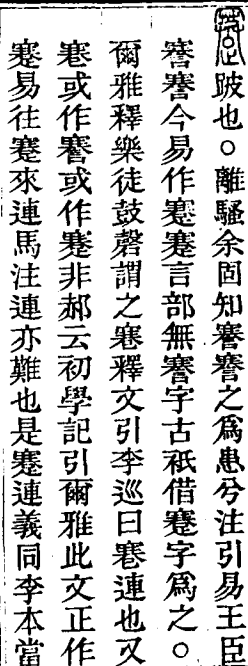 蹇跛也○離騷余固知謇謇之爲患兮注引易王臣
謇謇今易作蹇蹇言部無謇字古祇借蹇字爲之○
爾雅釋樂徒鼓磬謂之寋釋文引李巡曰寋連也又
寋或作謇或作蹇非郝云初學記引爾雅此文正作
蹇易往蹇來連馬注連亦難也是蹇連義同李本當